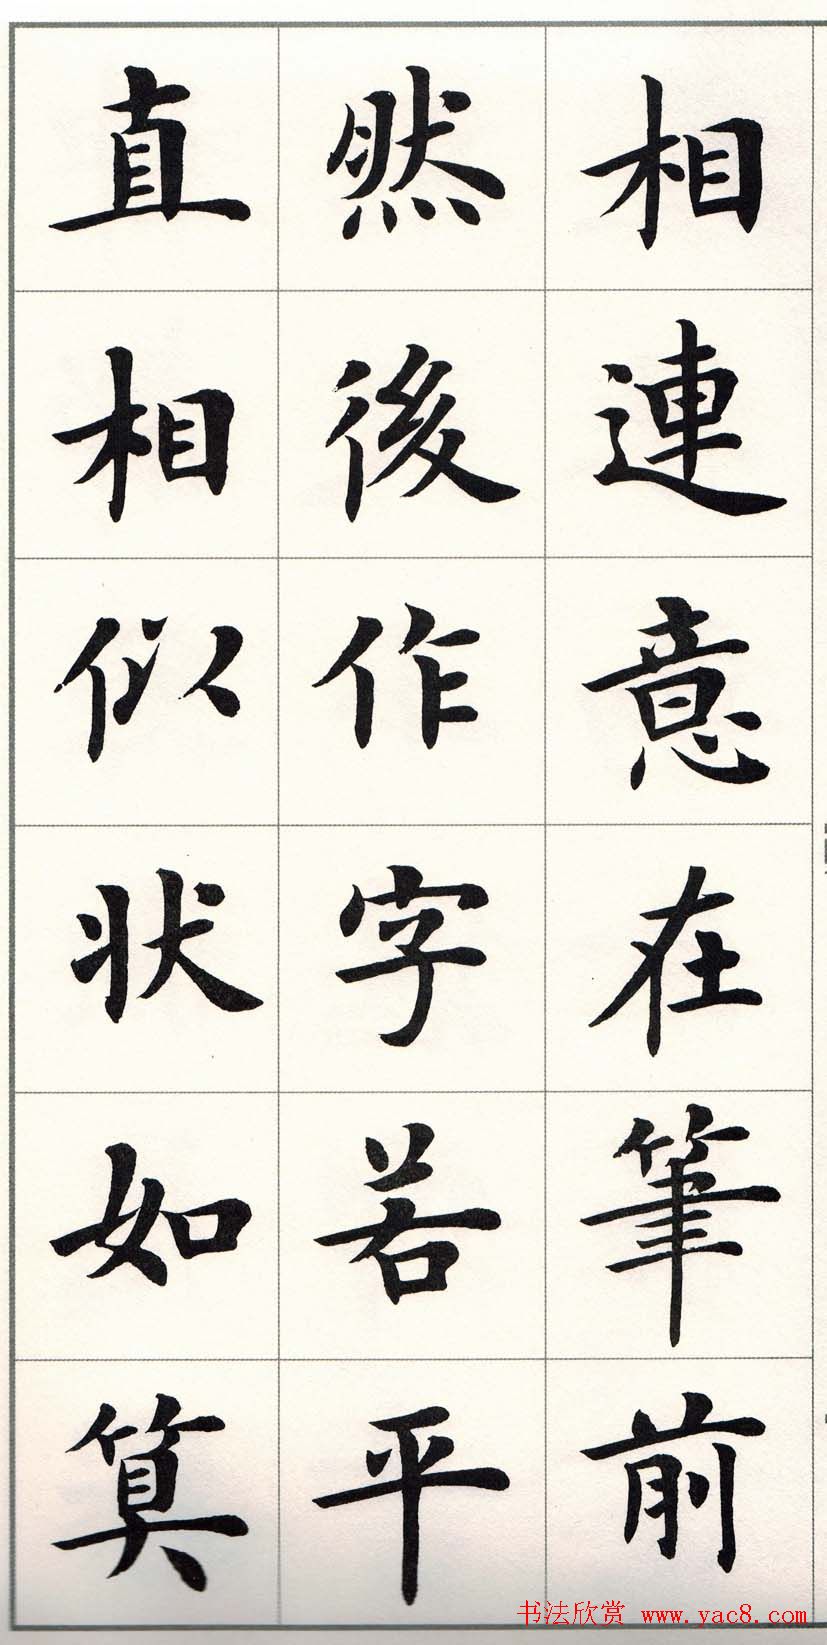 相連意在筆前
然後作字若平
直相似状如筭
书法欣赏 www.yac8.com